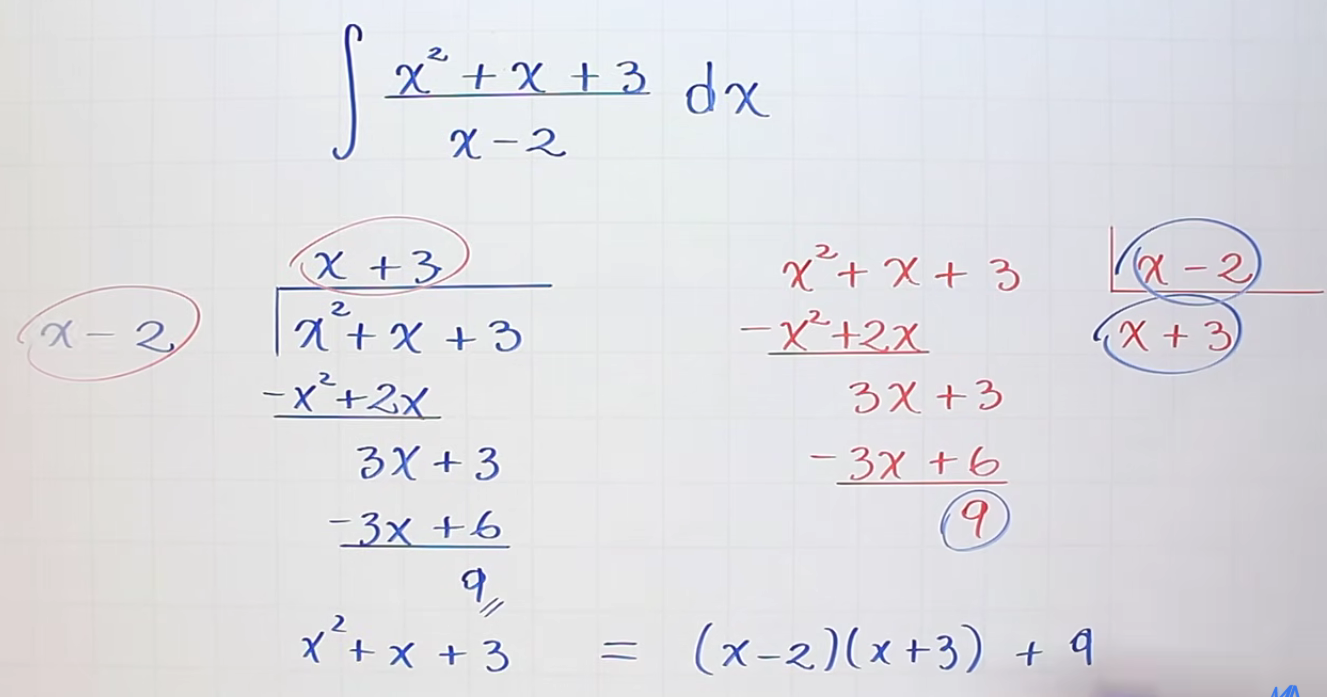 ∫ (x² + x + 3)/(x - 2) dx
x + 3
x - 2 | x² + x + 3
-x² + 2x
3x + 3
-3x + 6
9
x² + x + 3 | x - 2
-x² + 2x | x + 3
3x + 3
-3x + 6
9
x² + x + 3 = (x-2)(x+3) + 9